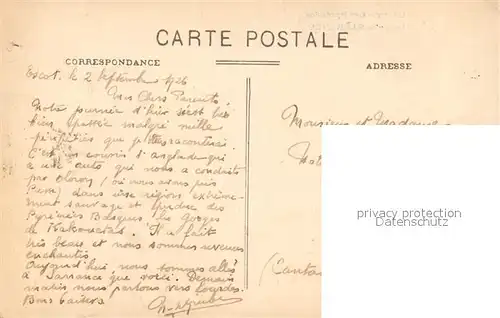 CARTE POSTALE
CORRESPONDANCE
ADRESSE
Escot, le 2 Septembre 1926
Mes Chers Parents
Notre journée d'hier s'est
bien passée malgré mille
péripéties que je
C'est un cousin d'
a une auto qui nous a conduits
par Oloron (où nous avons pris
) dans une région extrême-
ment sauvage et perdue des
Pyrénées Basques, les gorges
de Kakouetas. Il a fait
très beau et nous sommes revenus
enchantés.
Aujourd'hui nous sommes allés
à Sarrance que voici. Demain
matin nous partons vers Lourdes.
Bons baisers
Monsieur et Madame
(Cantal
privacy protection
AnsichtskartenLexikon.de